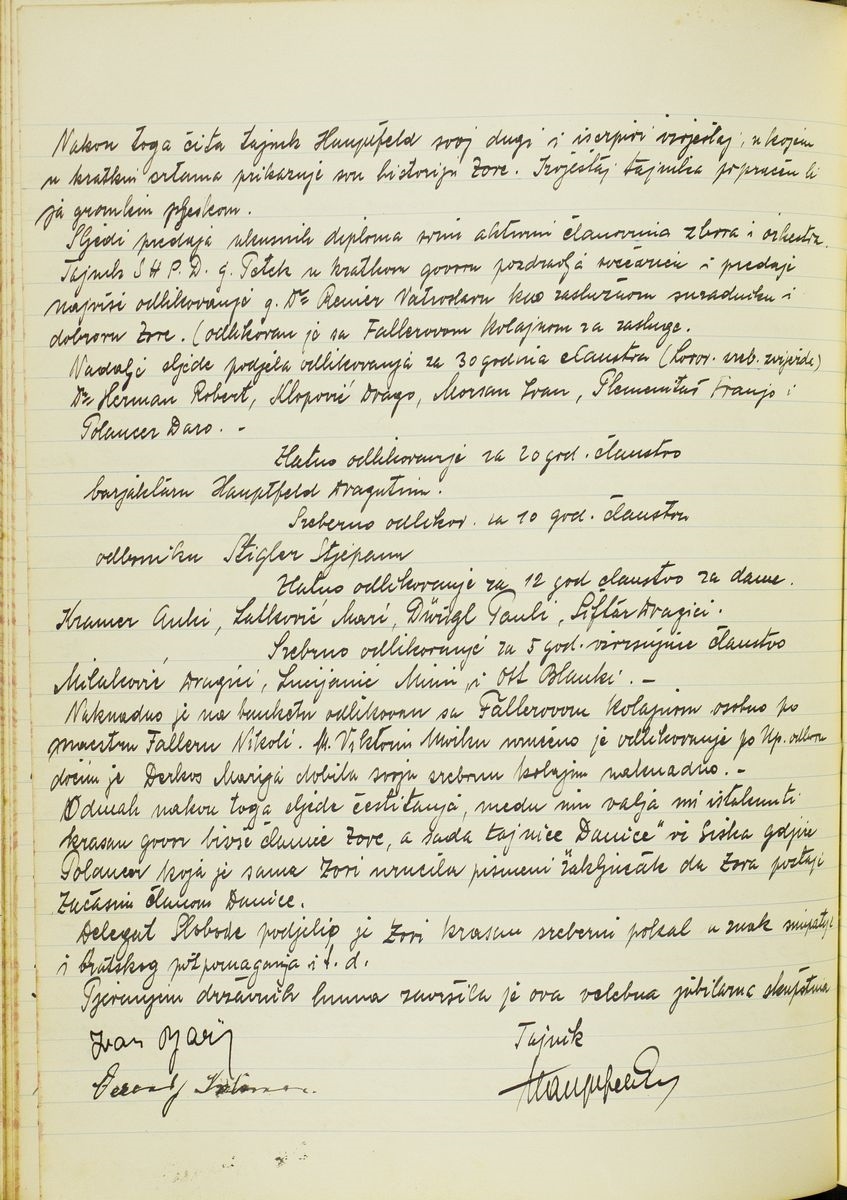 Nakon toga čita tajnik Hauptfeld svoj dugi i iscrpivi izvještaj, u kojem
u kratkim crtama prikazuje svu historiju Zore. Izvještaj tajnika popraćen bi
ja gromkim pljeskom.
Sljedi predaja ukusnih diploma svim aktivnim članovima zbora i orkestra.
Tajnik S H P. D. g. Petek u kratkom govoru pozdravlja svečanicu i predaje
najviše odlikovanje g. Dr. Renier Vatroslavu kao zaslužnom suradniku i
dobrovu Zore. (odlikovan je sa Fallerovom kolajnom za zasluge.
Nadalje sljede podjela odlikovanja za 30 godina članstva (Lovor. sreb. zvijezde)
Dr. Herman Robert, Klopović Drago, Morsan Ivan, Plemenitaš Franjo i
Polancer Daro. -
Zlatno odlikovanje za 20 god. članstvo
barjaktaru Hauptfeld Dragutinu.
Sreberno odlikov. za 10 god. članstvo
odborniku Štigler Stjepanu
Zlatno odlikovanje za 12 god članstvo za dame.
Kramer Anki, Latković Mari, Dürigl Pauli, Šiftar Dragici.
Srebrno odlikovanje za 5 god. izvršujuće članstvo
Milaković Dragici, Lucijanić Mimi, i Ott Blanki. -
Naknadno je na banketu odlikovan sa Fallerovom kolajnom osobno po
maestru Falleru Nikoli. M. Viktorin Mirku uručeno je odlikovanje po Up. odboru
dočim je Derkos Marija dobila svoju srebrnu kolajnu naknadno. -
Odmah nakon toga sljede čestitanja, među nim valja mi istaknuti
krasan govor bivše članice Zore, a sada tajnice "Danice" iz Siska gdjice
Polancer koja je sama Zori uručila pismeni zaključak da Zora postaje
začasnim članom Danice.
Delegat Slobode podjelio je Zori krasan sreberni pokal u znak simpatije
i bratskog potpomaganja i t. d.
Pjevanjem državnih himna završila je ova velebna jubilarna skupština
Ivan
Tajnik
Hauptfeld